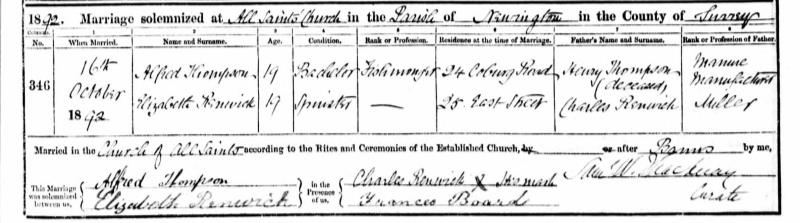 1892. Marriage solemnized at All Saints Church in the Parish of Newington in the County of Surrey
Columns. 1 2 3 4 5 6 7 8
No. When Married. Name and Surname. Age. Condition. Rank or Profession. Residence at the time of Marriage. Father's Name and Surname. Rank or Profession of Father.
346 16th Alfred Thompson 19 Bachelor Fishmonger 24 Coburg Road Henry Thompson (deceased) Manure Manufacturer
October Elizabeth Renwick 19 Spinster — 25 East Street Charles Renwick Miller
1892
Married in the Church of All Saints according to the Rites and Ceremonies of the Established Church, by or after Banns by me,
This Marriage was solemnized between us, Alfred Thompson Elizabeth Renwick in the Presence of us, Charles Renwick X His mark Frances Board W. Mackway Curate